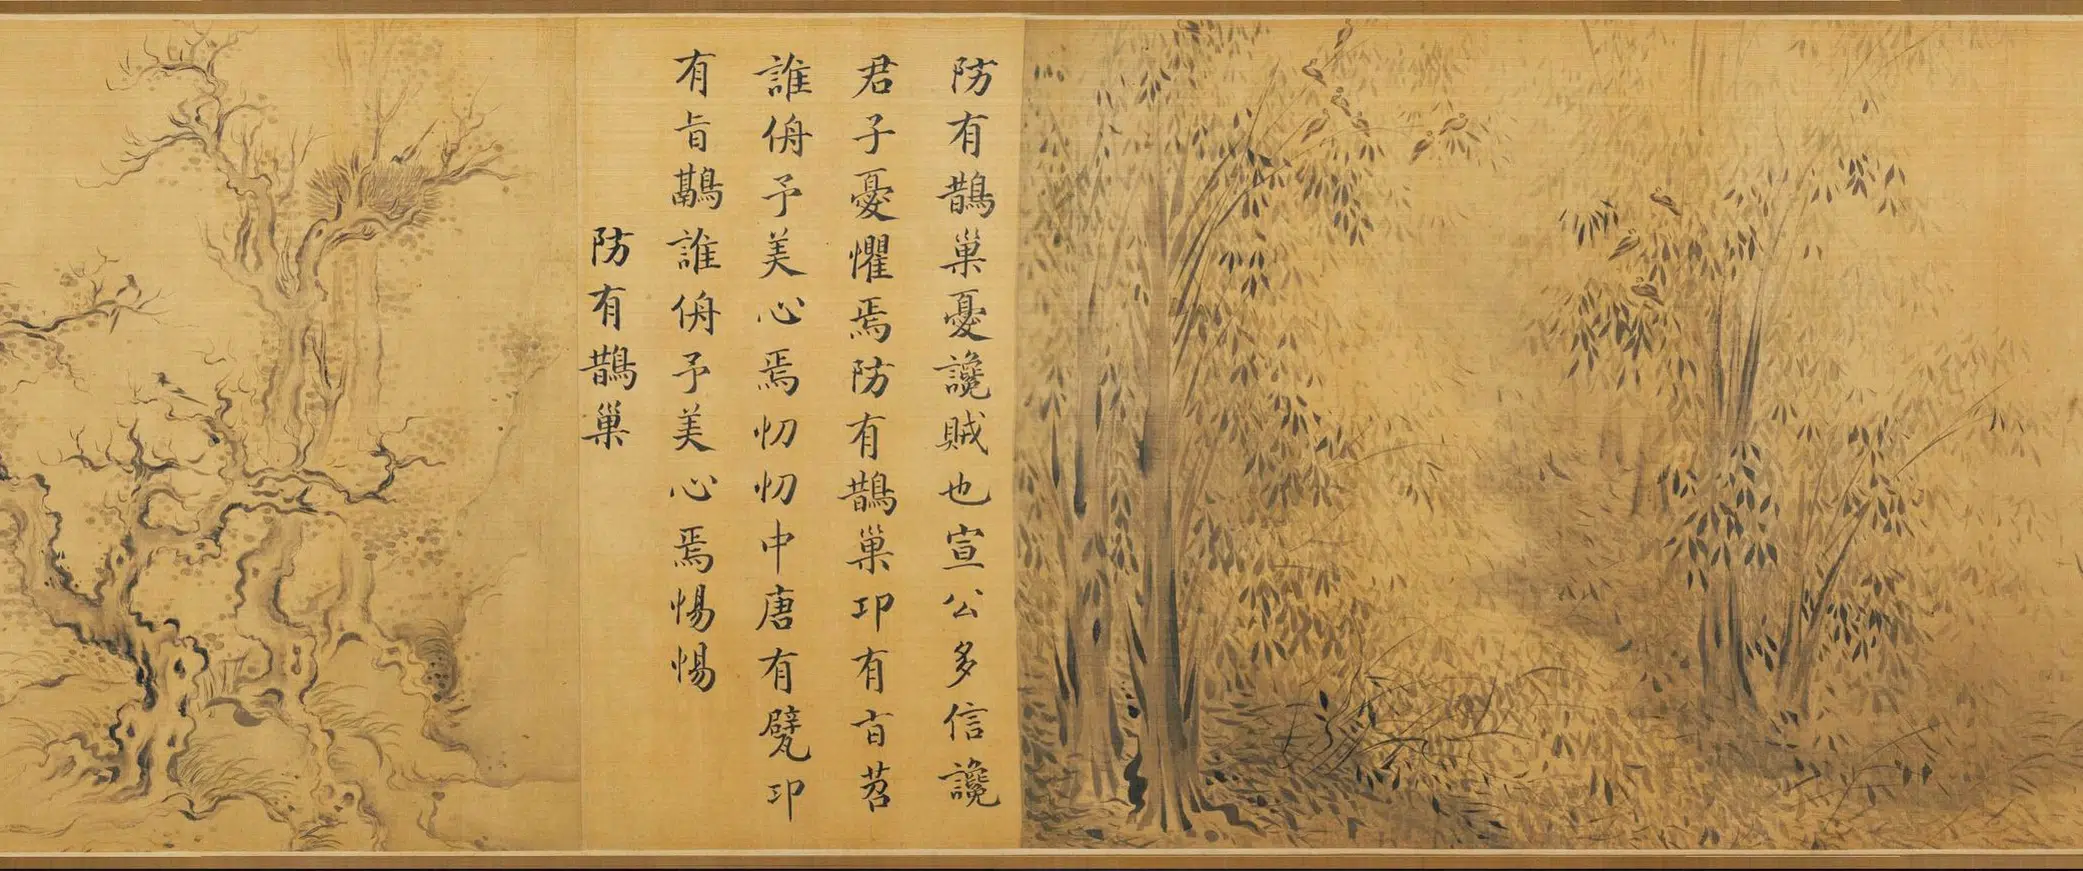 防有鵲巢憂讒賊也宣公多信讒
君子憂懼焉防有鵲巢邛有旨苕
誰侜予美心焉忉忉中唐有甓邛
有旨鷊誰侜予美心焉惕惕
防有鵲巢